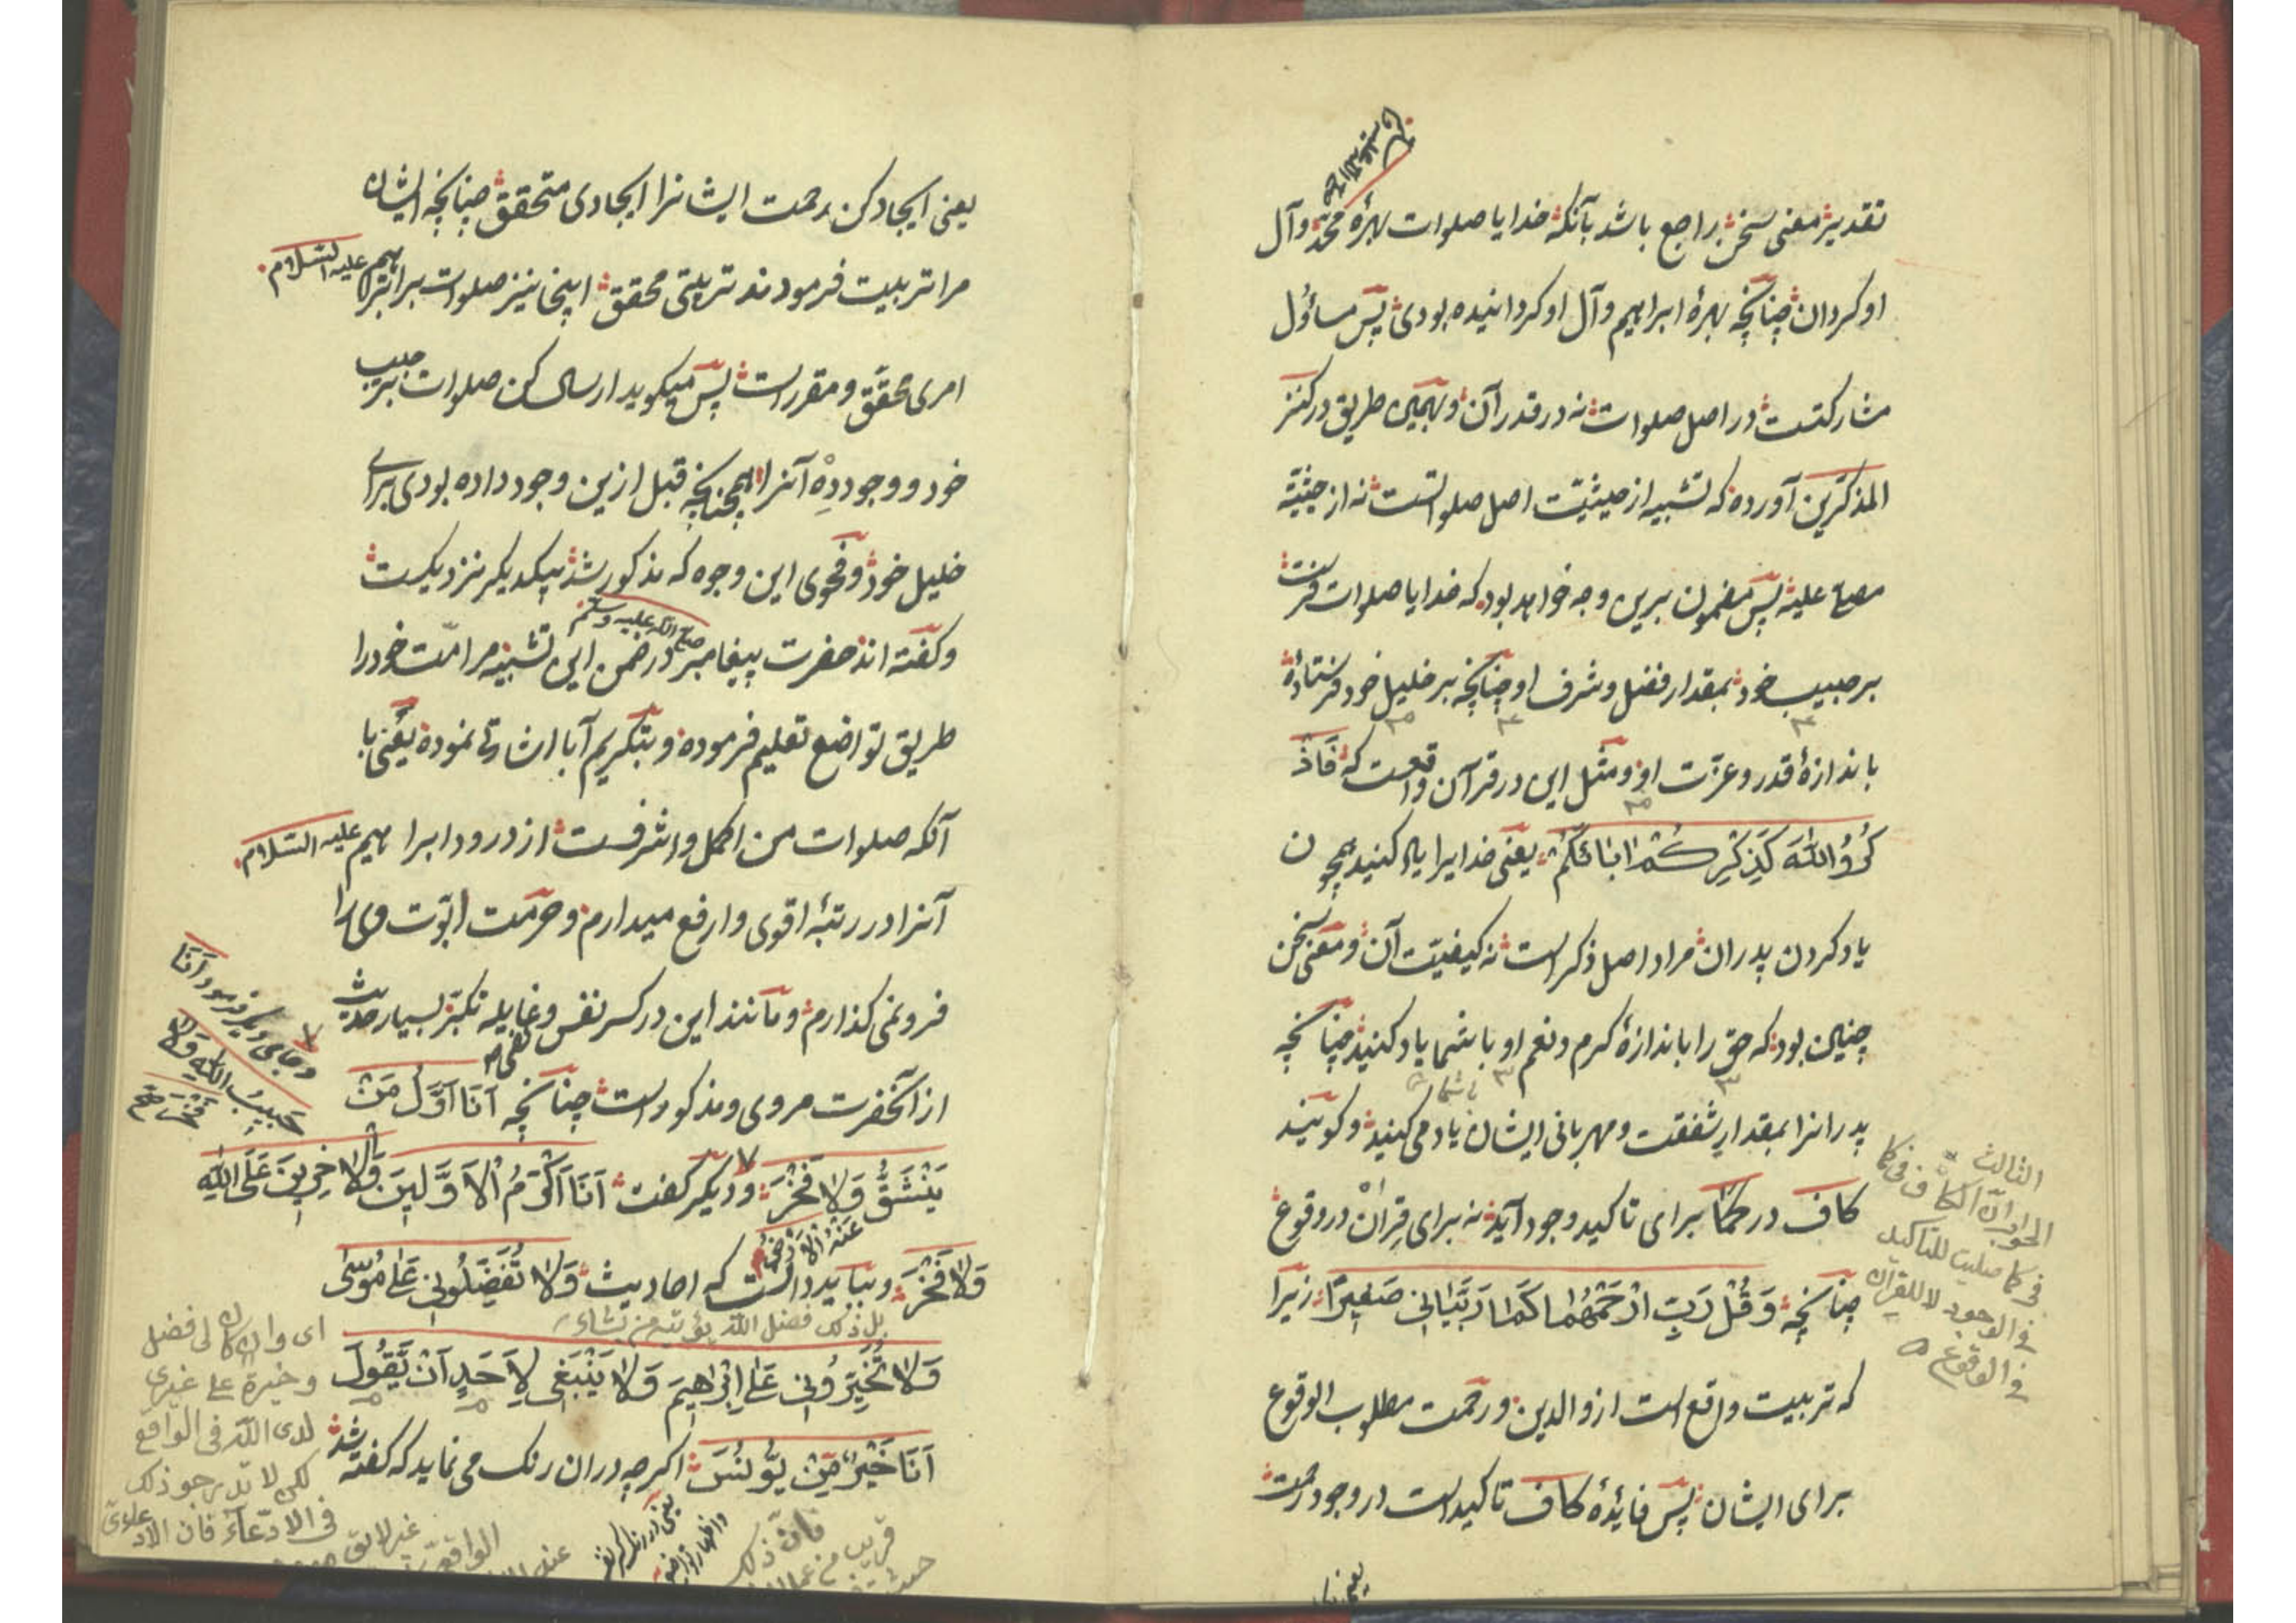 صلی الله علیه و آله
تقدیر معنی سخن براجع باشد بآنکه خدایا صلوات بهرهٔ محمد و آل
او کردان چنانچه بهرهٔ ابراهیم و آل او کردانیده بودی پس مسئول
مشارکتست در اصل صلوات نه در قدر آن و بهمین طریق در کنز
المذکرین آورده که تشبیه از حیثیّت اصل صلواتست نه از حیثیّة
مصلی علیه پس مضمون برین وجه خواهد بود که خدایا صلوات فرست
بر حبیب خود بمقدار فضل و شرف او چنانچه بر خلیل خود فرستادهٔ
باندازهٔ قدر و عزّت او و مثل این در قرآن واقعست که فَاذْ
كُرُوا اللّٰهَ كَذِكْرِكُمْ اٰبَائَكُمْ یعنی خدایرا یاد کنید همچون
یاد کردن پدران مراد اصل ذکر است نه کیفیّت آن و معنی سخن
چنین بود که حق را باندازهٔ کرم و نعم او با شما یاد کنید چنانچه
پدرانرا بمقدار شفقت و مهربانی ایشان یاد می کنید و کویند
کاف در کما برای تاکید وجود آید نه برای قِران در وقوع
چنانچه وَقُلْ رَبِّ ارْحَمْهُمَا كَمَا رَبَّيَانِي صَغِيرًا زیرا
که تربیت واقع است از والدین و رحمت مطلوب الوقوع
برای ایشان پس فایدهٔ کاف تاکید است در وجود رحمت
الثالث
الجواب ان الکاف فی کما
فی کما صلیت للتاکید
فی الوجود لا للقران
فی الوقوع
یعنی ایجاد کن رحمت ایشانرا ایجادی متحقق چنانچه ایشان
مرا تربیت فرمودند تربیتی محقق اینجا نیز صلوات بر ابراهیم علیه السّلام
امری محقّق و مقرر است پس میکوید ارسال کن صلوات بر حبیب
خود و وجود دِه آنرا همچنانچه قبل ازین وجود داده بودی برای
خلیل خود و فحوی این وجوه که مذکور شد بیکدیکر نزدیکست
و کفته اند حضرت پیغامبر صلی الله علیه وسلم در ضمن این تشبیه مر امّت خود را
طریق تواضع تعلیم فرموده و بتکریم آبا اشارتی نموده یعنی با
آنکه صلوات من اکمل و اشرفست از درود ابراهیم علیه السّلام
آنرا در رتبهٔ اقوی و ارفع میدارم و حرمت ابوّت وی را
فرو نمی کذارم و مانند این در کسر نفس و غایله تکبّر بسیار حدیث
از آنحضرت مروی و مذکور است چنانچه اَنَا اَوَّلُ مَنْ
يَنْشَقُّ عَنْهُ الْاَرْضُ وَلَا فَخْرَ و دیکر کفت اَنَا اَكْرَمُ الْاَوَّلِينَ وَالْاٰخِرِينَ عَلَى اللّٰهِ
وَلَا فَخْرَ و بباید دانست که احادیث وَلَا تُفَضِّلُونِي عَلٰى مُوسٰى
بل ذلک فضل اللّه یؤتیه من یشاء
وَلَا تُخَيِّرُونِي عَلٰى اِبْرٰاهِيمَ وَلَا يَنْبَغِي لِاَحَدٍ اَنْ يَقُولَ
اَنَا خَيْرٌ مِنْ يُونُسَ اکرچه دران رنک می نماید که کفته شد
و جای دیکر فرمود اَنَا
حَبِيبُ اللّٰهِ وَلَا
فَخْرَ صح
ای وان کان لی فضل
و خیرة علی غیری
لدی اللّه فی الواقع
لکن لا بد
فی الادّعاء فان الادعاء